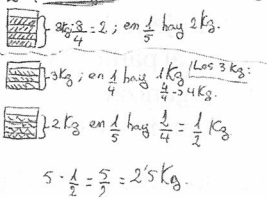 3Kg · 3/4 = 2 ; en 1/5 hay 2Kg.
3Kg ; en 1/4 hay 1Kg / Los 3 Kg.
4/4 → 4Kg.
2Kg en 1/5 hay 2/4 = 1/2 Kg.
5 · 1/2 = 5/2 = 2'5Kg.